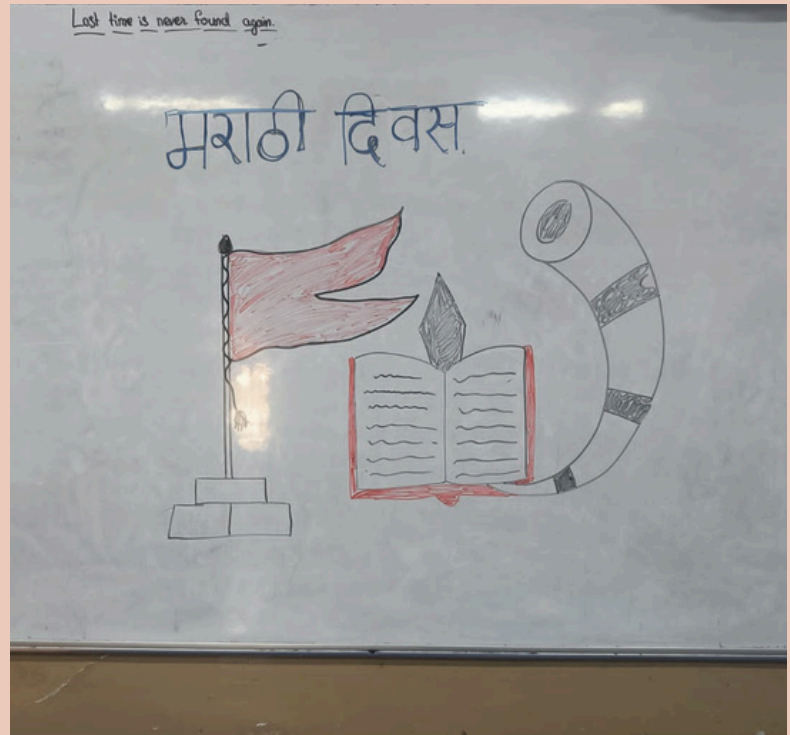 Lost time is never found again.
मराठी दिवस.